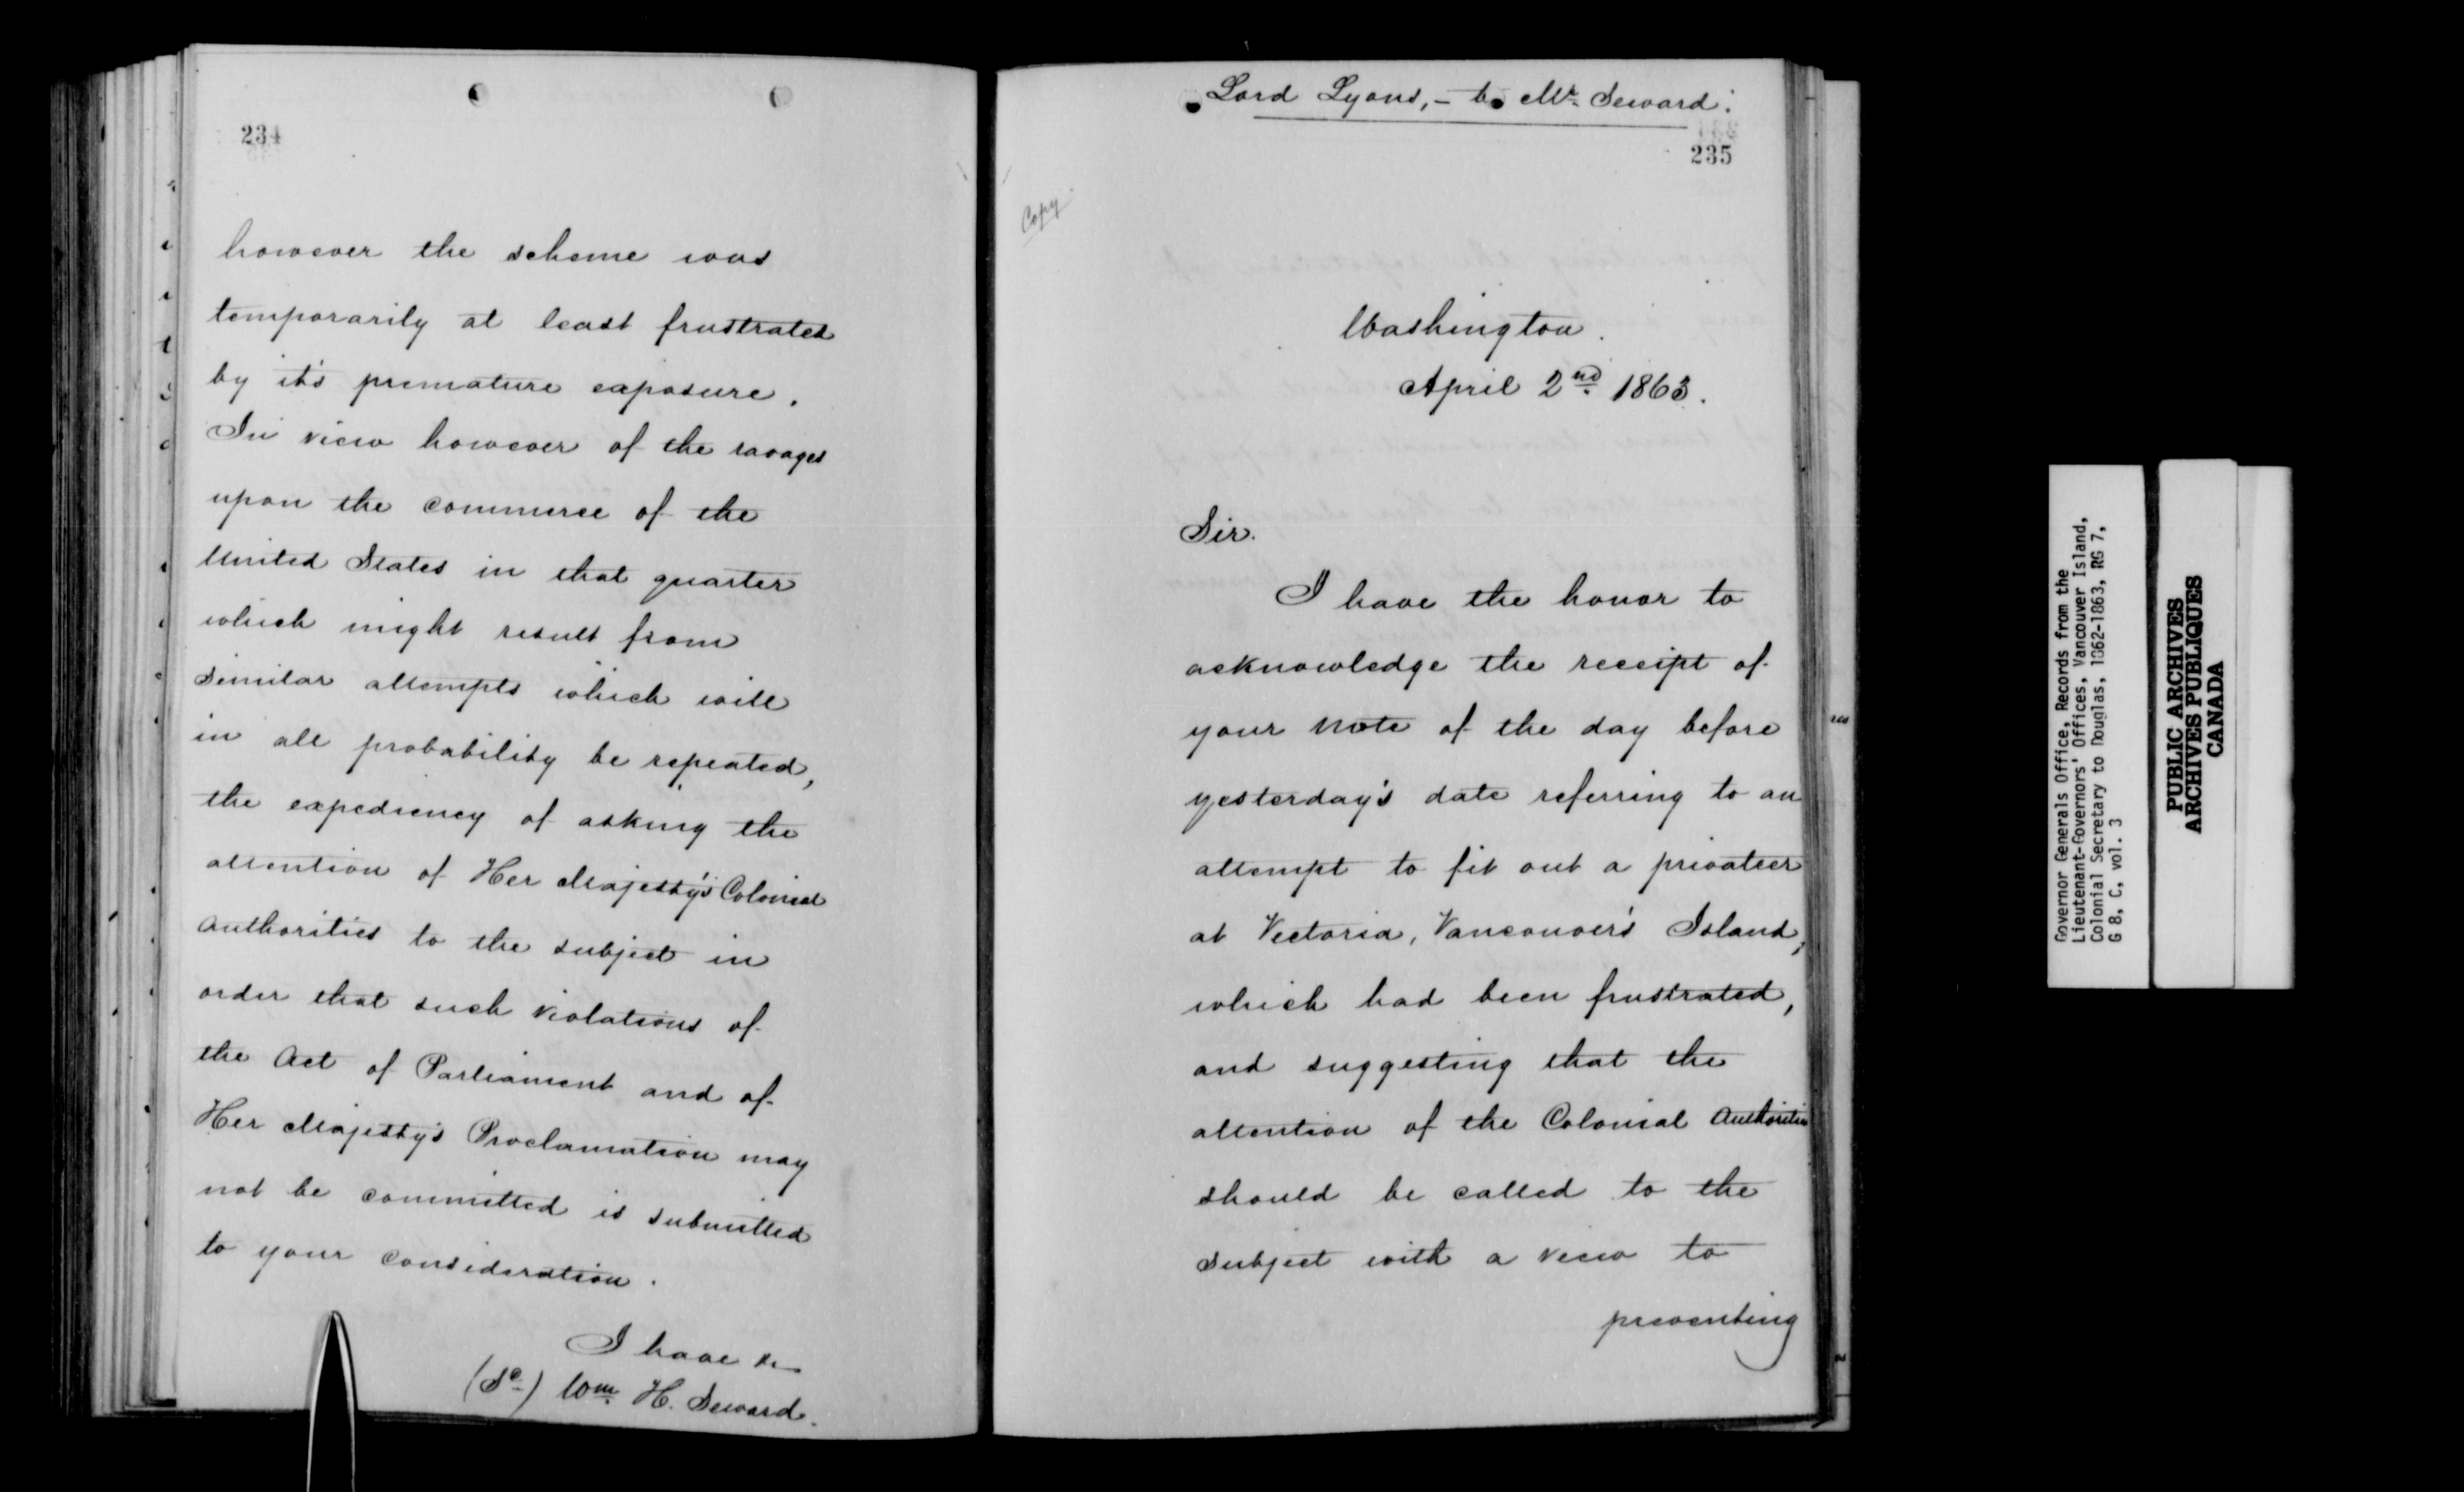 234
however the scheme was
temporarily at least frustrated
by it's premature exposure.
In view however of the ravages
upon the commerce of the
United States in that quarter
which might result from
similar attempts which will
in all probability be repeated,
the expediency of asking the
attention of Her Majesty's Colonial
Authorities to the subject in
order that such violations of
the Act of Parliament and of
Her Majesty's Proclamation may
not be committed is submitted
to your consideration.
I have &c
(Sd.) Wm. H. Seward.
Lord Lyons, - to Mr. Seward.
235
Copy
Washington.
April 2nd 1863.
Sir.
I have the honor to
acknowledge the receipt of
your note of the day before
yesterday's date referring to an
attempt to fit out a privateer
at Victoria, Vancouver's Island,
which had been frustrated,
and suggesting that the
attention of the Colonial Authorities
should be called to the
subject with a view to
preventing
Governor Generals Office, Records from the
Lieutenant-Governors' Offices, Vancouver Island,
Colonial Secretary to Douglas, 1862-1863, RG 7,
G 8, C, vol. 3
PUBLIC ARCHIVES
ARCHIVES PUBLIQUES
CANADA